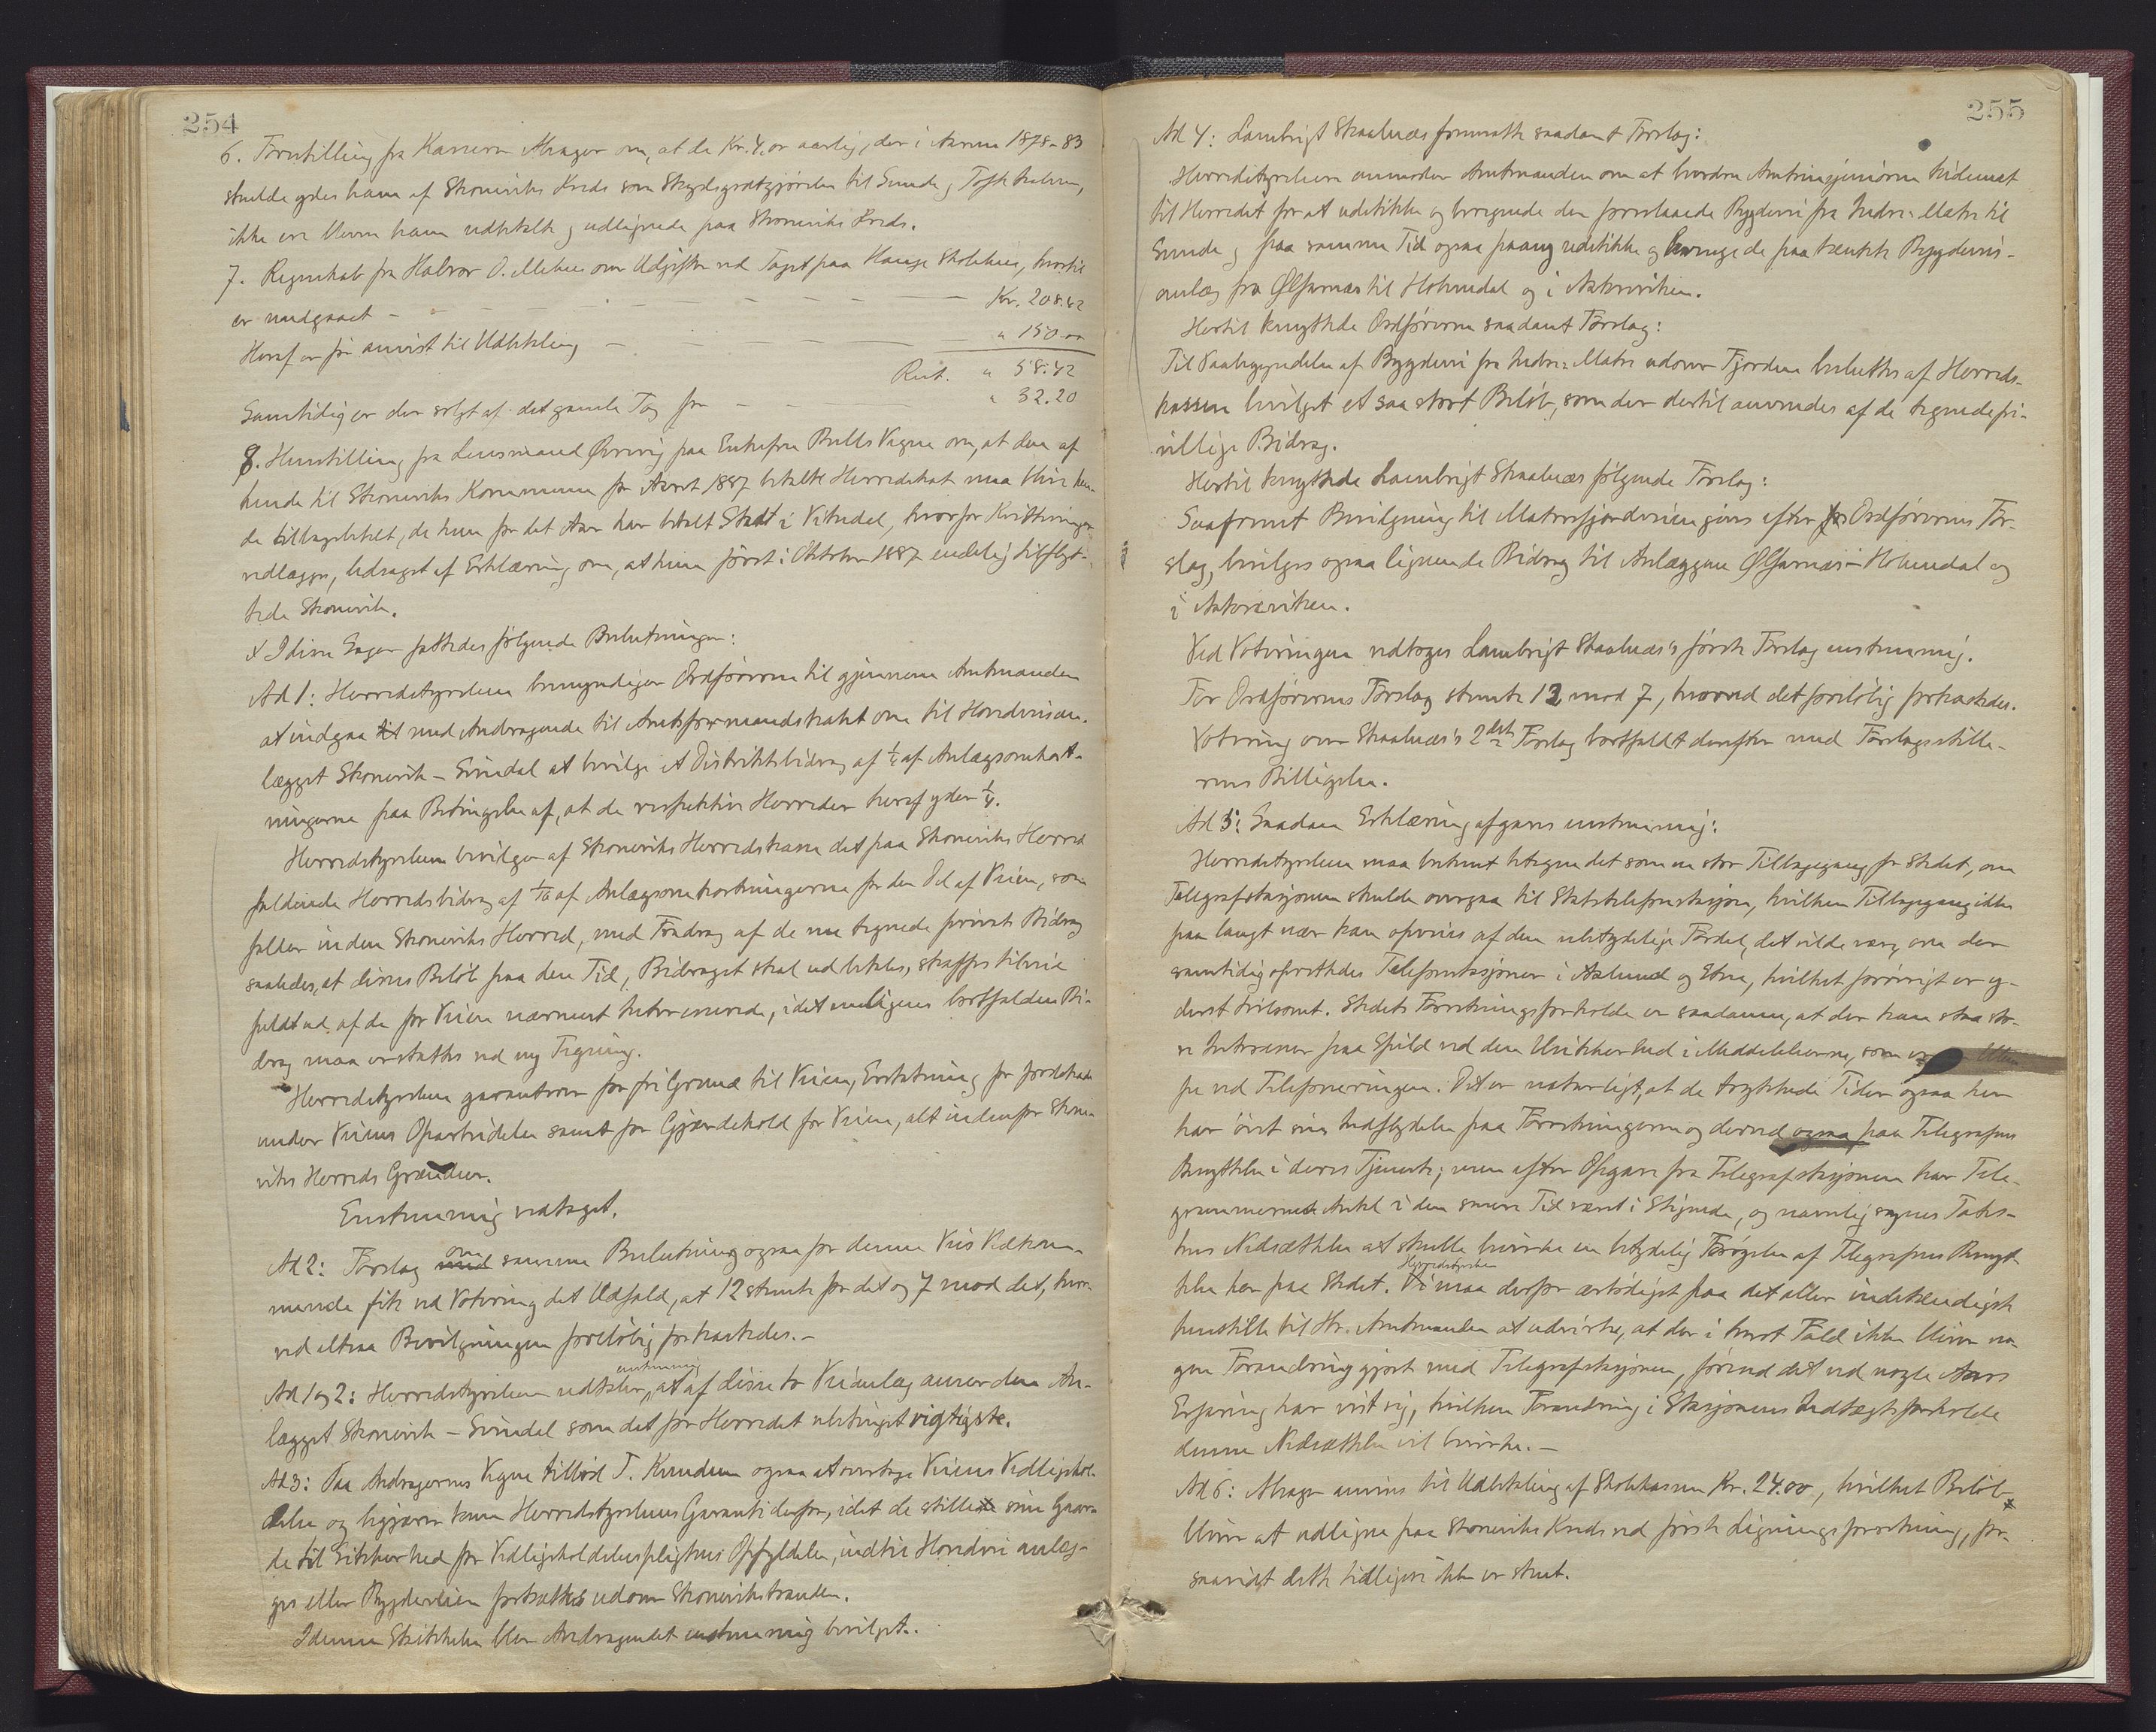 254
6. Forestilling fra Kasserer Abrager om, at de Kr. 4,00 aarlig, der i Aarene 1878-83
skulde ydes ham af Skoneviks Kreds som Skydsgodtgjørelse til Sunde og Tofte Skolerne,
ikke ere blevne ham udbetalte og udlignede paa Skoneviks Kreds.
7. Regnskab fra Halvor O. Mehus over Udgifter ved Taget paa Hauge Skolehus, hvortil
er medgaaet - Kr. 208.42
Heraf er før anvist til Udbetaling - " 150.00
Rest. " 58.42
Samtidig er der solgt af det gamle Tag for " 32.20
8. Henstilling fra Lensmand Øvrevig paa Enkefru Bulls Vegne om, at den af
hende til Skoneviks Kommune for Aaret 1887 betalte Herredsskat maa blive hen-
de tilbagebetalt, da hun for det Aar har betalt Skat i Vikedal, hvorfor Kvitteringer
vedlægges, ledsaget af Erklæring om, at hun først i Oktober 1887 endelig tilflyt-
tede Skonevik.
I disse Sager fattedes følgende Beslutninger:
Ad 1: Herredstyrelsen bemyndiger Ordføreren til gjennem Amtmanden
at indgaa til med Andragende til Amtsformandskabet om til Hovedveian-
lægget Skonevik - Svindal at bevilge et Distriktsbidrag af ¼ af Anlægsomkost-
ningerne paa Betingelse af, at de respektive Herreder heraf yder ¼.
Herredstyrelsen bevilger af Skoneviks Herredskasse det paa Skoneviks Herred
faldende Herredsbidrag af 1/16 af Anlægsomkostningerne for den Del af Veien, som
falder inden Skoneviks Herred, med Fradrag af de nu tegnede private Bidrag
saaledes, at disses Beløb paa den Tid, Bidraget skal udbetales, skaffes tilveie
fuldt ud af de for Veien nærmest Interesserede, idet muligens bortfaldne Bi-
drag maa erstattes ved ny Tegning.
Herredstyrelsen garanterer for fri Grund til Veien, Erstatning for Jordskade
under Veiens Oparbeidelse samt for Gjærdehold for Veien, alt indenfor Skone-
viks Herreds Grændser.
Enstemmig vedtaget.
Ad 2: Forslag med om samme Beslutning ogsaa for denne Veis Vedkom-
mende fik ved Votering det Udfald, at 12 stemte for det og 7 mod det, hvor-
ved altsaa Bevilgningen foreløbig forkastedes.-
Ad 1 og 2: Herredstyrelsen udtaler enstemmig, at af disse to Veianlæg anser den An-
lægget Skonevik - Svindal som det for Herredet ubetinget vigtigste.
Ad 3: Paa Andragernes Vegne tilbød T. Kvindesen ogsaa at overtage Veiens Vedligehol-
delse og begjærer kun Herredstyrelsens Garanti derfor, idet de stillede sine Gaar-
de til Sikkerhed for Vedligeholdelsespligtens Opfyldelse, indtil Hovedvei anlæg-
ges eller Bygdeveien fortsættes udover Skonevikstranden.
I denne Skikkelse blev Andragendet enstemmig bevilget.
255
Ad 4: Lambrigt Skaalnæs fremsatte saadant Forslag:
Herredstyrelsen anmoder Amtmanden om at beordre Amtsingeniøren hidsendt
til Herredet for at udstikke og beregne den foreslaaede Bygdevei fra Indre-Matre til
Sunde og paa samme Tid ogsaa paany udstikke og beregne de paatænkte Bygdeveis-
anlæg fra Ølfarnæs til Holmedal og i Aakreviken.
Hertil knyttede Ordføreren saadant Forslag:
Til Paabegyndelse af Bygdevei fra Indre-Matre udover Fjorden besluttes af Herreds-
kassen bevilget et saa stort Beløb, som der dertil anvendes af de tegnede fri-
villige Bidrag.
Hertil knyttede Lambrigt Skaalnæs følgende Forslag:
Saafremt Bevilgning til Matrefjordveien gives efter Ordførerens For-
slag, bevilges ogsaa lignende Bidrag til Anlæggene Ølfarnæs - Holmedal og
i Aakreviken.
Ved Voteringen vedtoges Lambrigt Skaalnæs's første Forslag enstemmig.
For Ordførerens Forslag stemte 12 mod 7, hvorved det foreløbig forkastedes.
Votering over Skaalnæs's 2det Forslag bortfaldt derefter med Forslagsstille-
rens Billigelse.
Ad 5: Saadan Erklæring afgaves enstemmig:
Herredstyrelsen maa bestemt betegne det som en stor Tilbagegang for Stedet, om
Telegrafstasjonen skulde overgaa til Statstelefonstasjon, hvilken Tilbagegang ikke
paa langt nær kan opveies af den ubetydelige Fordel, det vilde være, om der
samtidig oprettedes Telefonstasjoner i Aalund og Etne, hvilket forøvrigt er y-
derst tvilsomt. Stedets Forretningsforholde er saadanne, at der kan staa sto-
re Interesser paa Spild ved den Usikkerhed i Meddelelserne, som er
fre ved Telefoneringen. Det er naturligt, at de trykkede Tider ogsaa her
har øvet sin Indflydelse paa Forretningerne og derved ogsaa paa Telegrafens
Benyttelse i deres Tjeneste; men efter Opgave fra Telegrafstasjonen har Tele-
grammernes Antal i den senere Tid været i Stigende, og navnlig synes Taks-
tens Nedsættelse at skulle bevirke en betydelig Forøgelse af Telegrafens Benyt-
telse her paa Stedet. Vi Herredstyrelsen maa derfor ærbødigst paa det aller indstændigste
henstille til Hr. Amtmanden at udvirke, at der i hvert Fald ikke bliver no-
gen Forandring gjort med Telegrafstasjonen, førend det ved nogle Aars
Erfaring har vist sig, hvilken Forandring i Stasjonens Indtægtsforholde
denne Nedsættelse vil bevirke.-
Ad 6: Abrager anvises til Udbetaling af Skolekassen Kr. 24.00, hvilket Beløb
bliver at udligne paa Skoneviks Kreds ved første Ligningsforretning, for-
saavidt dette tidligere ikke er skeet.